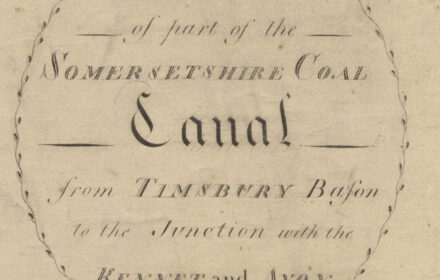 of part of the
SOMERSETSHIRE COAL
Canal
from TIMSBURY Baſon
to the Junction with the
KENNET and AVON